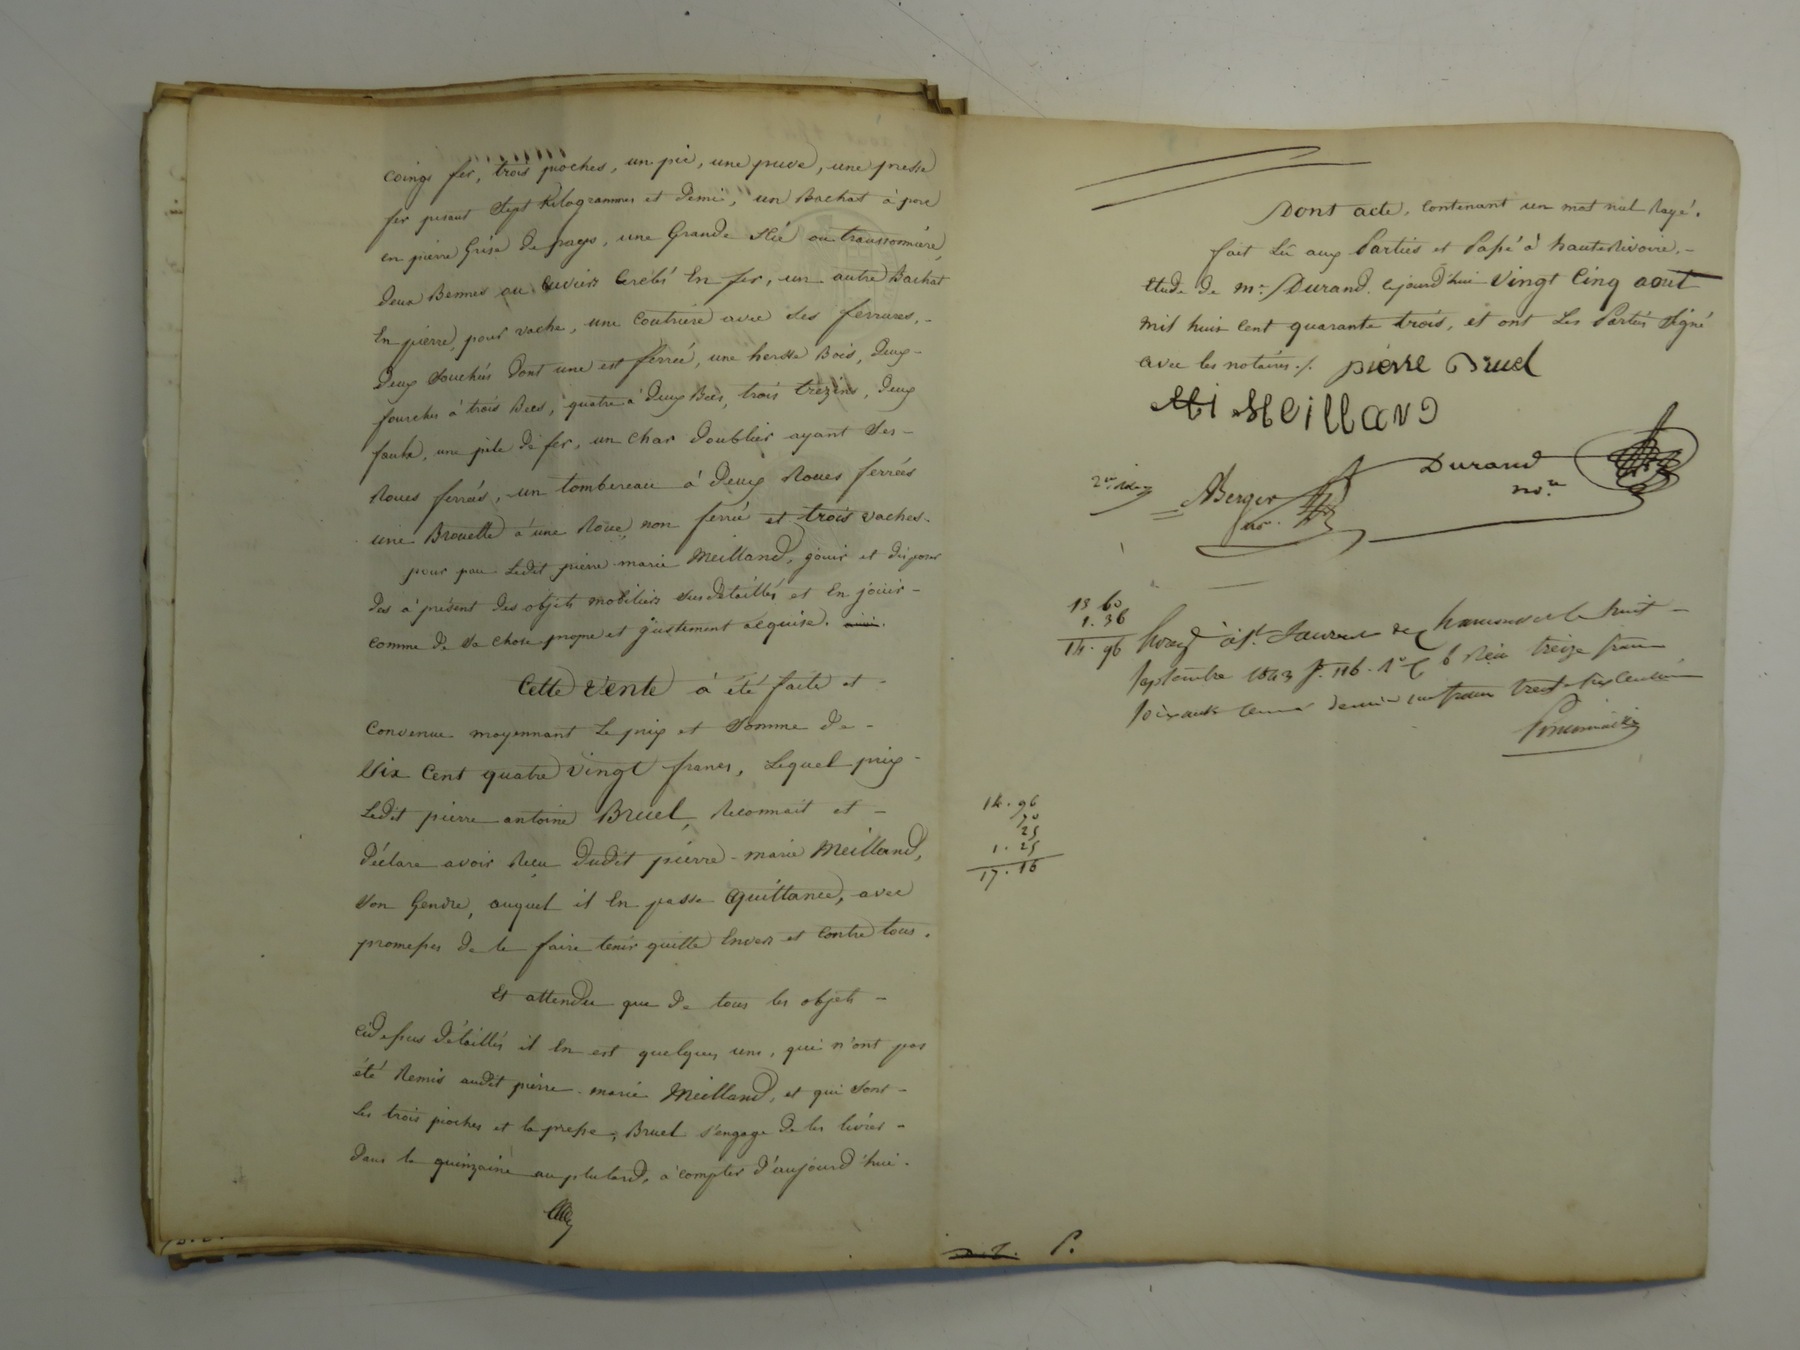 coings fer, trois pioches, un pic, une puve, une presse
fer pesant Sept Kilogrammes et demi, un Bachat à porc
en pierre Grise de pays, une Grande Scié ou transonnière,
deux Bennes ou Cuviers Cerclés En fer, un autre Bachat
En pierre, pour vache, une Coutriere avec Ses ferrures,
deux Souches dont une est ferrée, une hersse Bois, deux
fourches à trois Becs, quatre à deux Becs, trois trezens, deux
faulx, une pile de fer, un Char doublier ayant Ses
Roues ferrées, un tombereau à deux Roues ferrées
une Brouette à une Roue, non ferrée et trois vaches.
pour par Ledit pierre marie Meilland, jouir et disposer
dès à présent des objets mobiliers Susdétaillés et En jouir
comme de Sa chose propre et justement acquise.
Cette Vente à été faite et
Convenue moyennant Le prix et Somme de
Six Cent quatre Vingt francs, Lequel prix
Ledit pierre antoine Bruel, Reconnait et
déclare avoir Reçu dudit pierre-marie Meilland,
Son Gendre, auquel il En passe Quittance, avec
promesses de le faire tenir quitte Envers et Contre tous.
Et attendu que de tous les objets
Cidessus détaillés il En est quelques uns, qui n'ont pas
été Remis audit pierre-marie Meilland, et qui Sont
Les trois pioches et la presse, Bruel s'engage de les livrer
dans la quinzaine au plutard, à compter d'aujourd'hui.
Dont acte, Contenant un mot nul Rayé.
fait Lû aux Parties et Passé à hauterivoire,
Etude de Mr. Durand. Cejourd'hui Vingt Cinq aout
mil huit Cent quarante trois, et ont Les Parties Signé
avec les notaires./. pierre Bruel
Meilland
Durand
nore
ABerger
nre.
13 60
1. 36
14. 96
Enregé à St. Laurent de Chamousset le huit
Septembre 1843 fo. 116. Ro C 6 Reçu treize francs
soixante cent. decime un franc trente six centimes
14. 96
70
25
1. 25
17. 16
P.